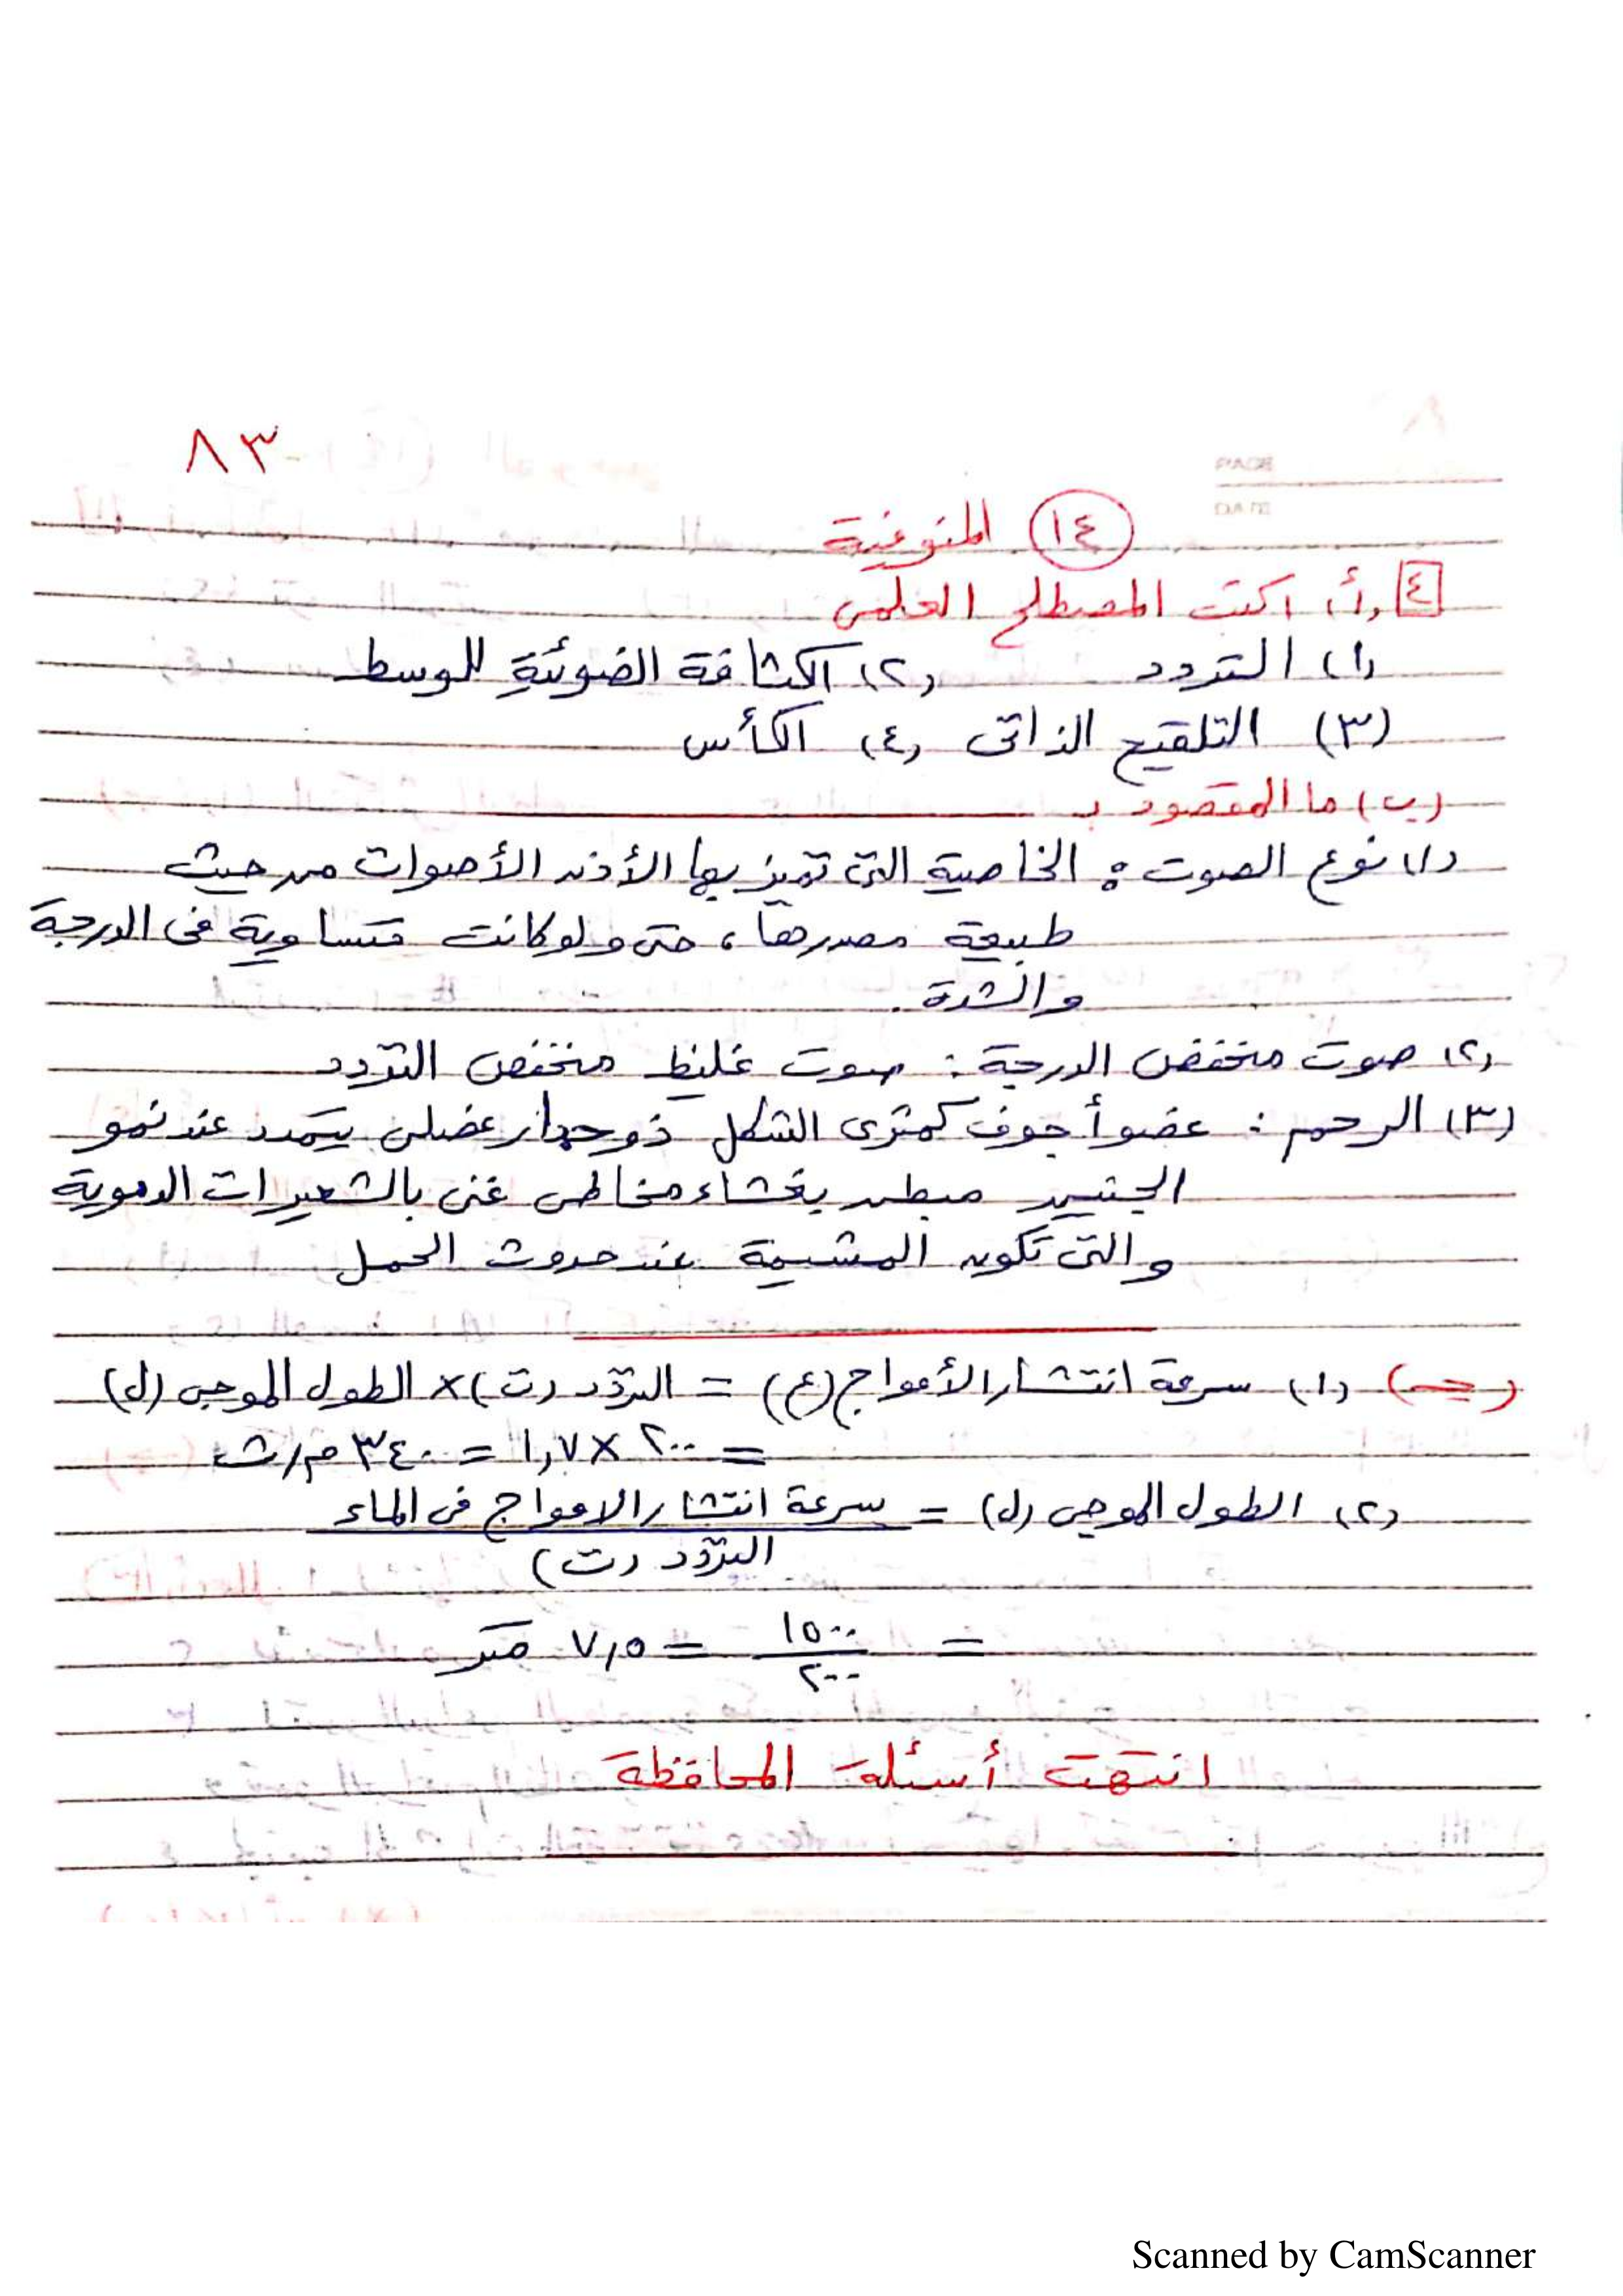 ٨٣
١٤ المنوفية
٤ (أ) اكتب المصطلح العلمى
(١) التردد (٢) الكثافة الضوئية للوسط
(٣) التلقيح الذاتى (٤) الكأس
(ب) ما المقصود بـ
(١) نوع الصوت : الخاصية التى تميز بها الأذن الأصوات من حيث
طبيعة مصدرها، حتى ولو كانت متساوية فى الدرجة
والشدة .
(٢) صوت منخفض الدرجة : صوت غليظ منخفض التردد
(٣) الرحم : عضو أجوف كمثرى الشكل ذو جدار عضلى يتمدد عند نمو
الجنين مبطن بغشاء مخاطى غنى بالشعيرات الدموية
والتى تكون المشيمة عند حدوث الحمل
(جـ) (١) سرعة انتشار الأمواج (ع) = التردد (ت) × الطول الموجى (ل)
= ٢٠٠ × ١,٧ = ٣٤٠ م/ث
(٢) الطول الموجى (ل) = سرعة انتشار الامواج فى الماء
التردد (ت)
= ١٥٠٠ / ٢٠٠ = ٧,٥ متر
انتهت أسئلة المحافظة
Scanned by CamScanner